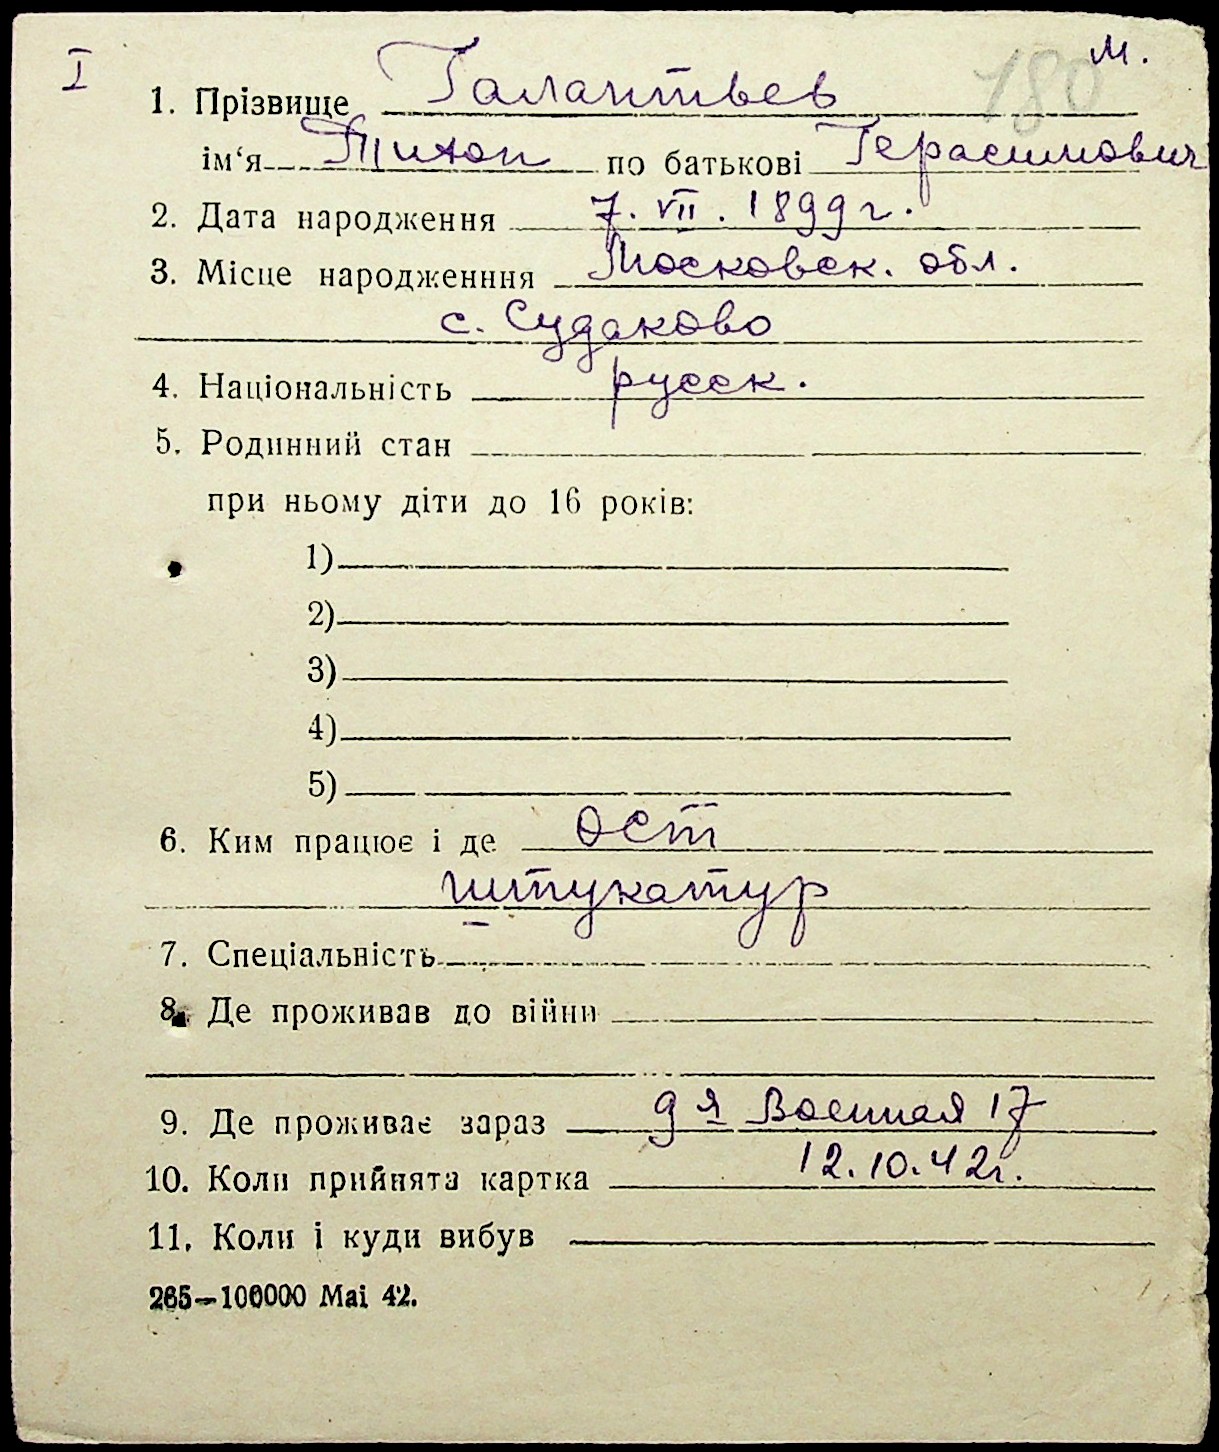 I
м.
180
1. Прізвище Галантьев
ім‘я Тихон по батькові Герасимович
2. Дата народження 7. VII. 1899 г.
3. Місце народженння Московск. обл.
с. Судаково
4. Національність русск.
5. Родинний стан
при ньому діти до 16 років:
1)
2)
3)
4)
5)
6. Ким працює і де ОСТ
штукатур
7. Спеціальність
8. Де проживав до війни
9. Де проживає зараз 9 я Военная 17
10. Коли прийнята картка 12.10.42г.
11. Коли і куди вибув
265—100000 Mai 42.